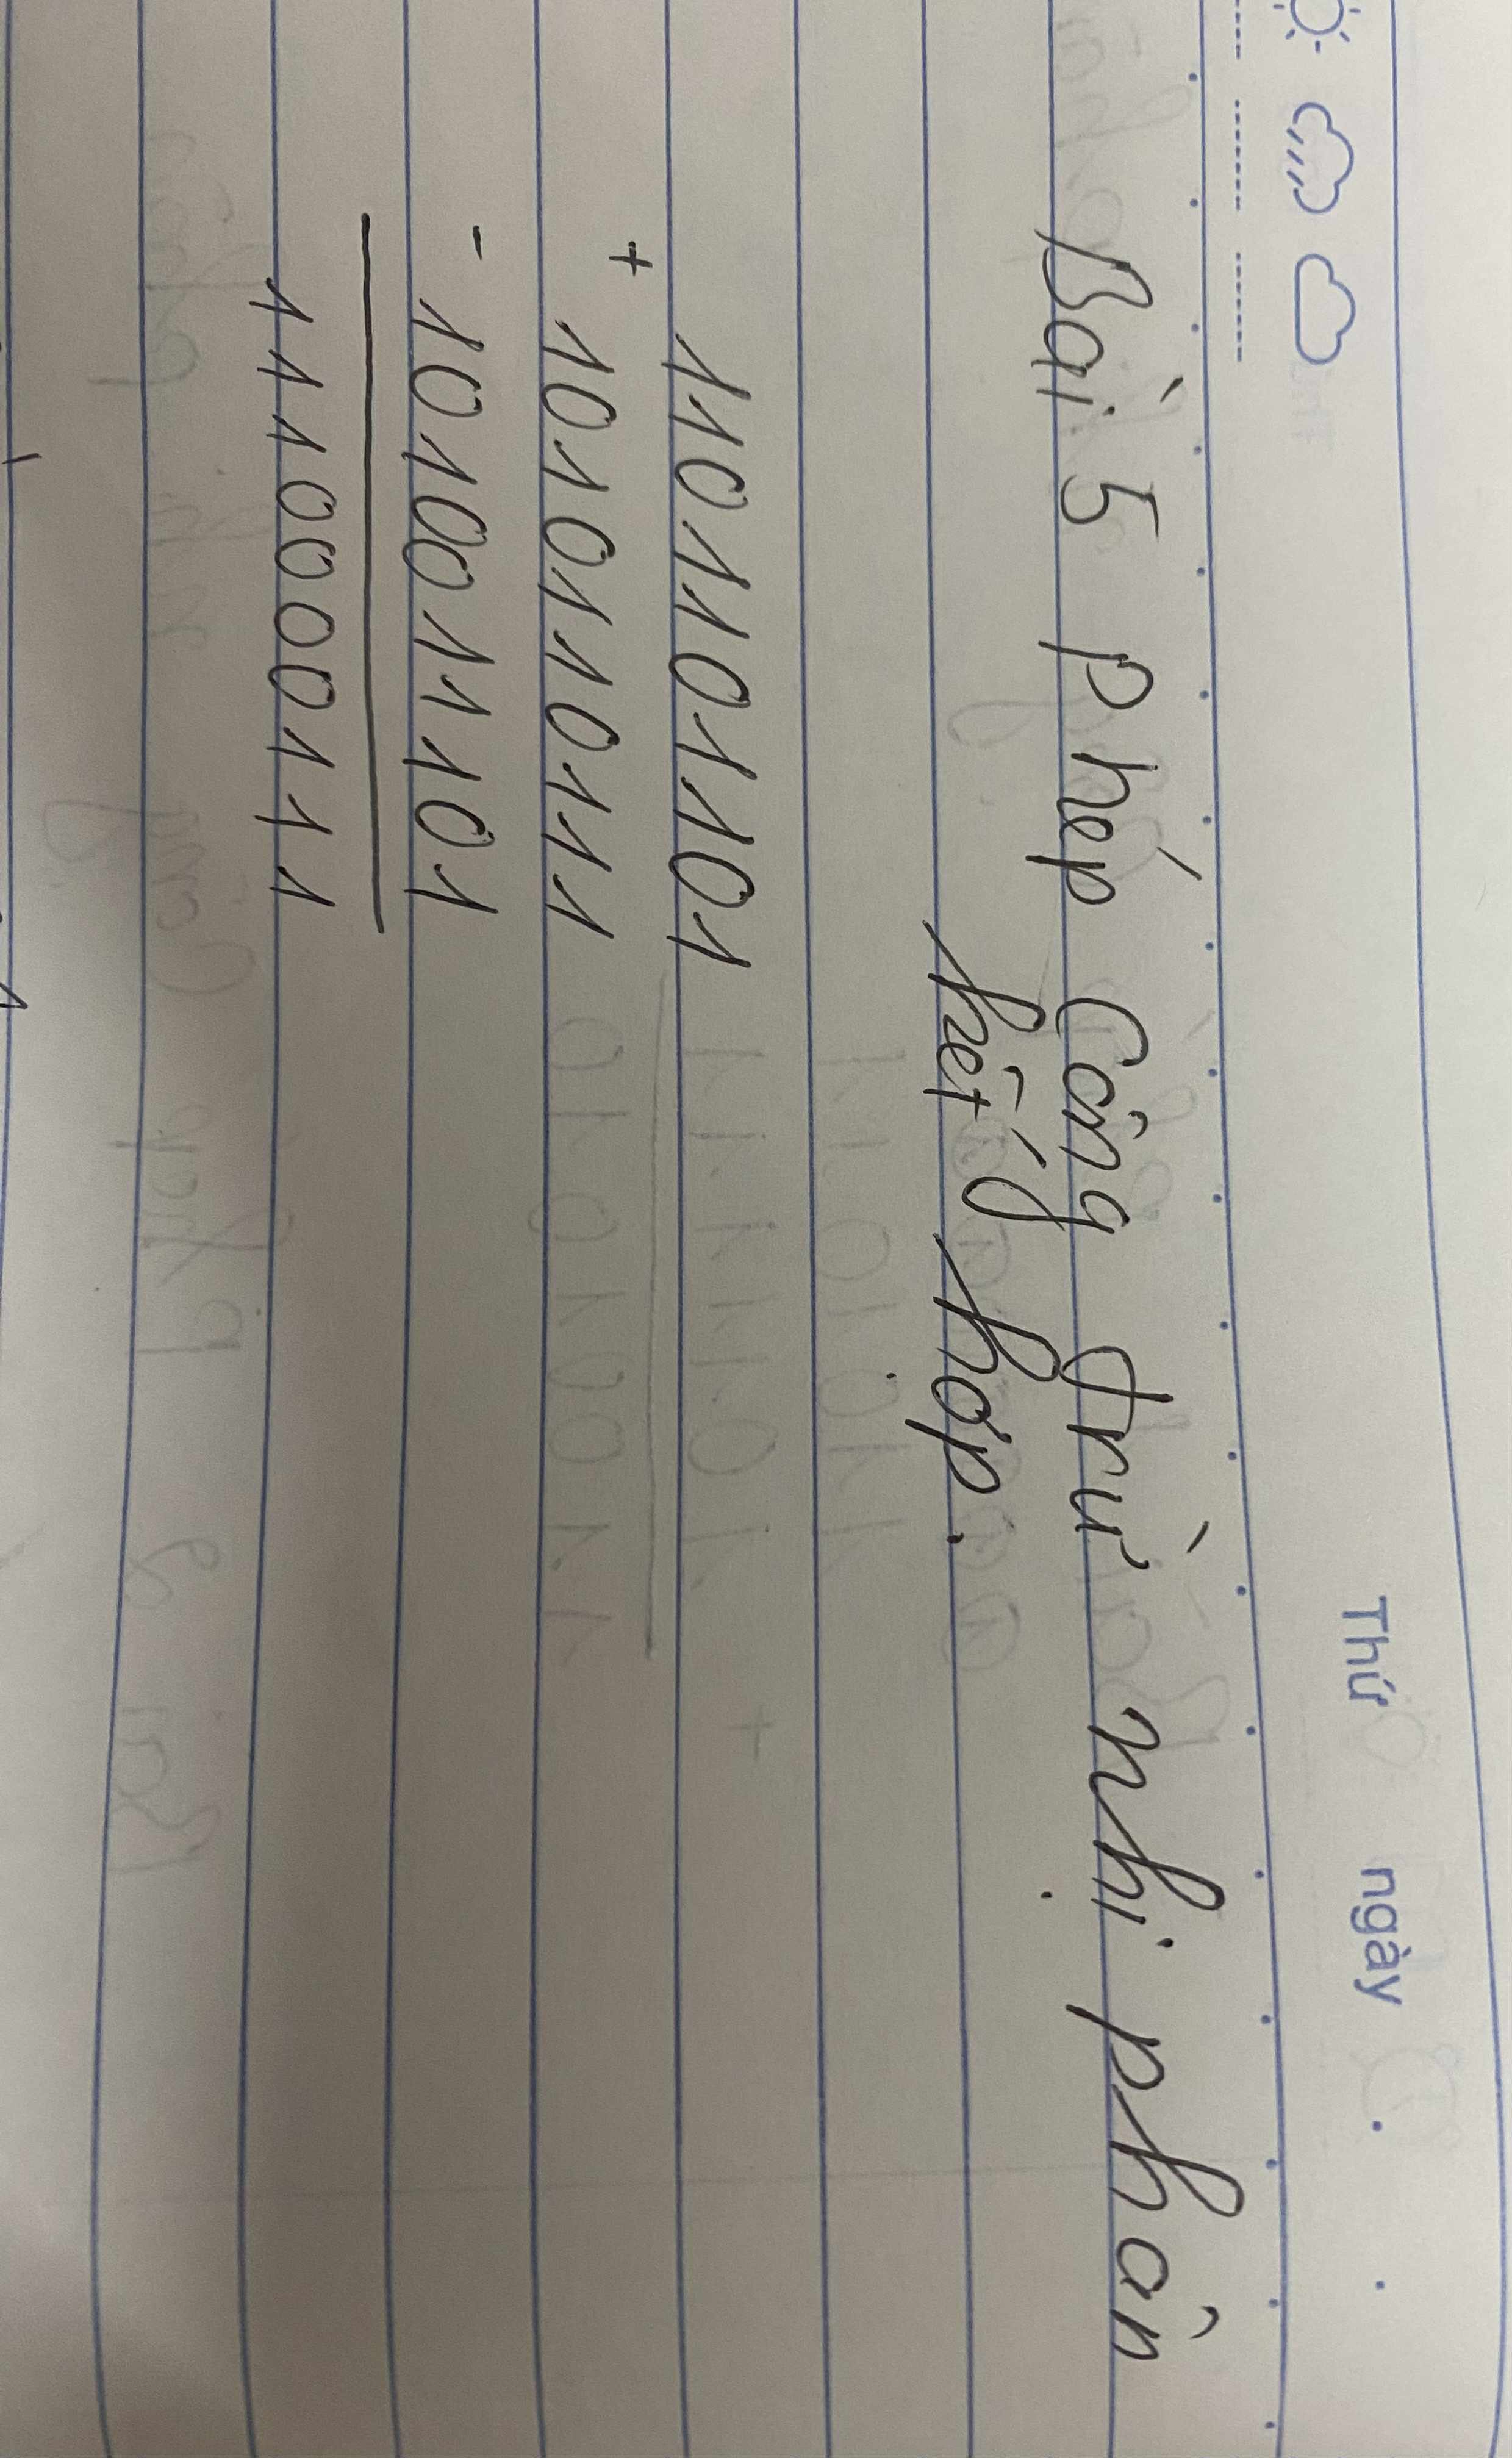 Thứ ngày . .
Bài 5 Phép Công trừ nhị phân
kết hơp.
1101101101
+ 1010110111
- 1010011101
1110000111